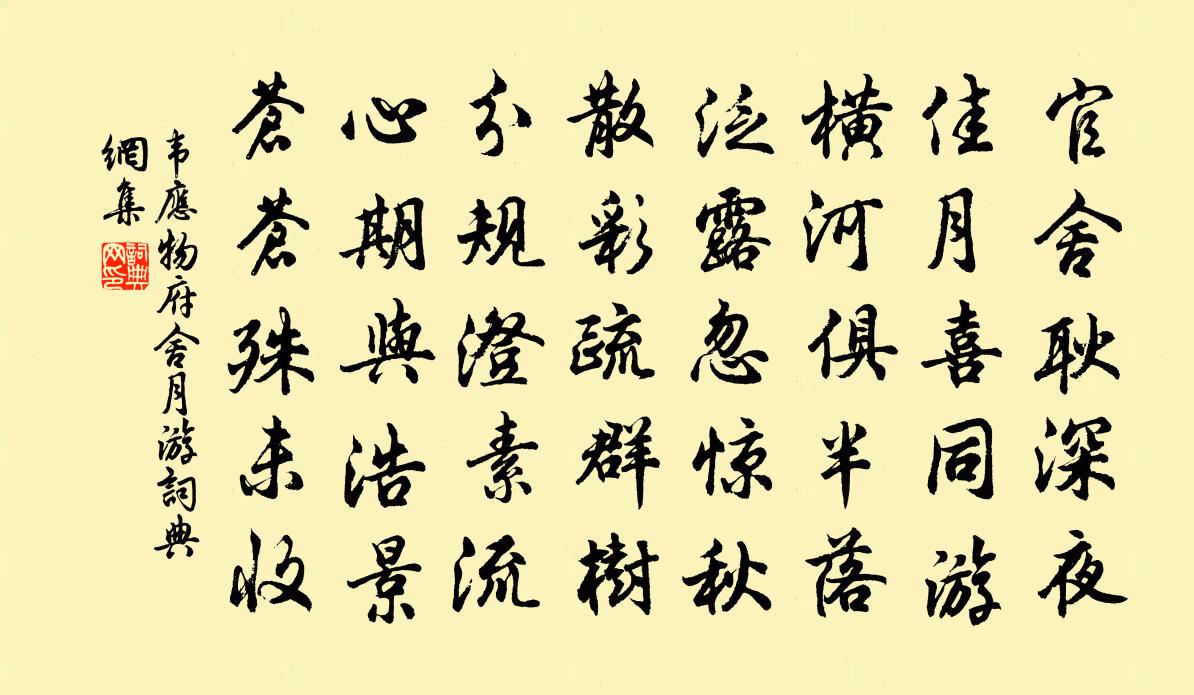 官舍耿深夜
佳月喜同游
橫河俱半落
泛露忽惊秋
散彩疏群樹
分規澄素流
心期與浩景
蒼蒼殊未收
韦應物府舍月游詞典
網集
詞典
网印